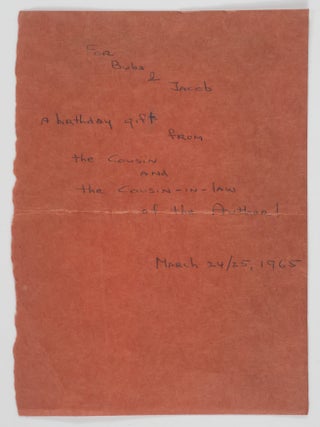 For
Bubs
&
Jacob
A birthday gift
from
the Cousin
AND
the Cousin-in-law
of the Author!
March 24/25, 1965